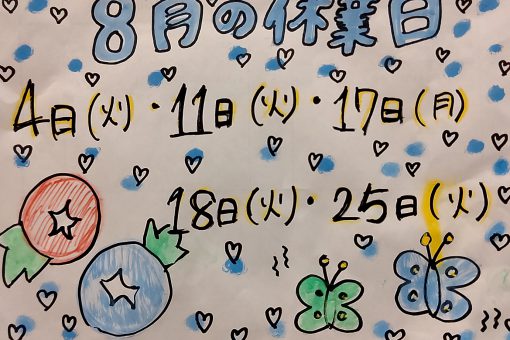 8月の休業日
4日(火)・11日(火)・17日(月)
18日(火)・25日(火)